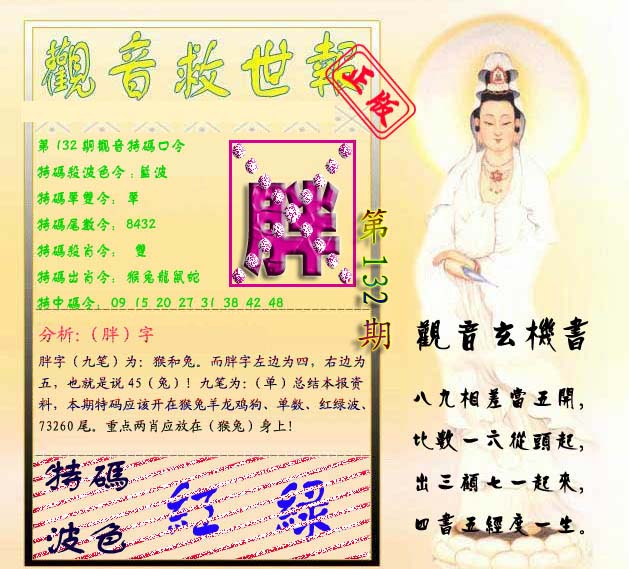 觀音救世報
正版
第132期觀音特碼口令
特碼殺波色令:藍波
特碼單雙令: 單
特碼尾數令: 8432
特碼殺肖令: 雙
特碼出肖令: 猴兔龍鼠蛇
特中碼令: 09 15 20 27 31 38 42 48
胖
第132期
分析:(胖)字
胖字(九笔)为:猴和兔。而胖字左边为四,右边为
五,也就是说45(兔)!九笔为:(单)总结本报资
料,本期特码应该开在猴兔羊龙鸡狗、单数、红绿波、
73260尾。重点两肖应放在(猴兔)身上!
特碼
波色
紅 綠
觀音玄機書
八九相差當五開,
比數一六從頭起,
出三顧七一起來,
四書五經度一生。